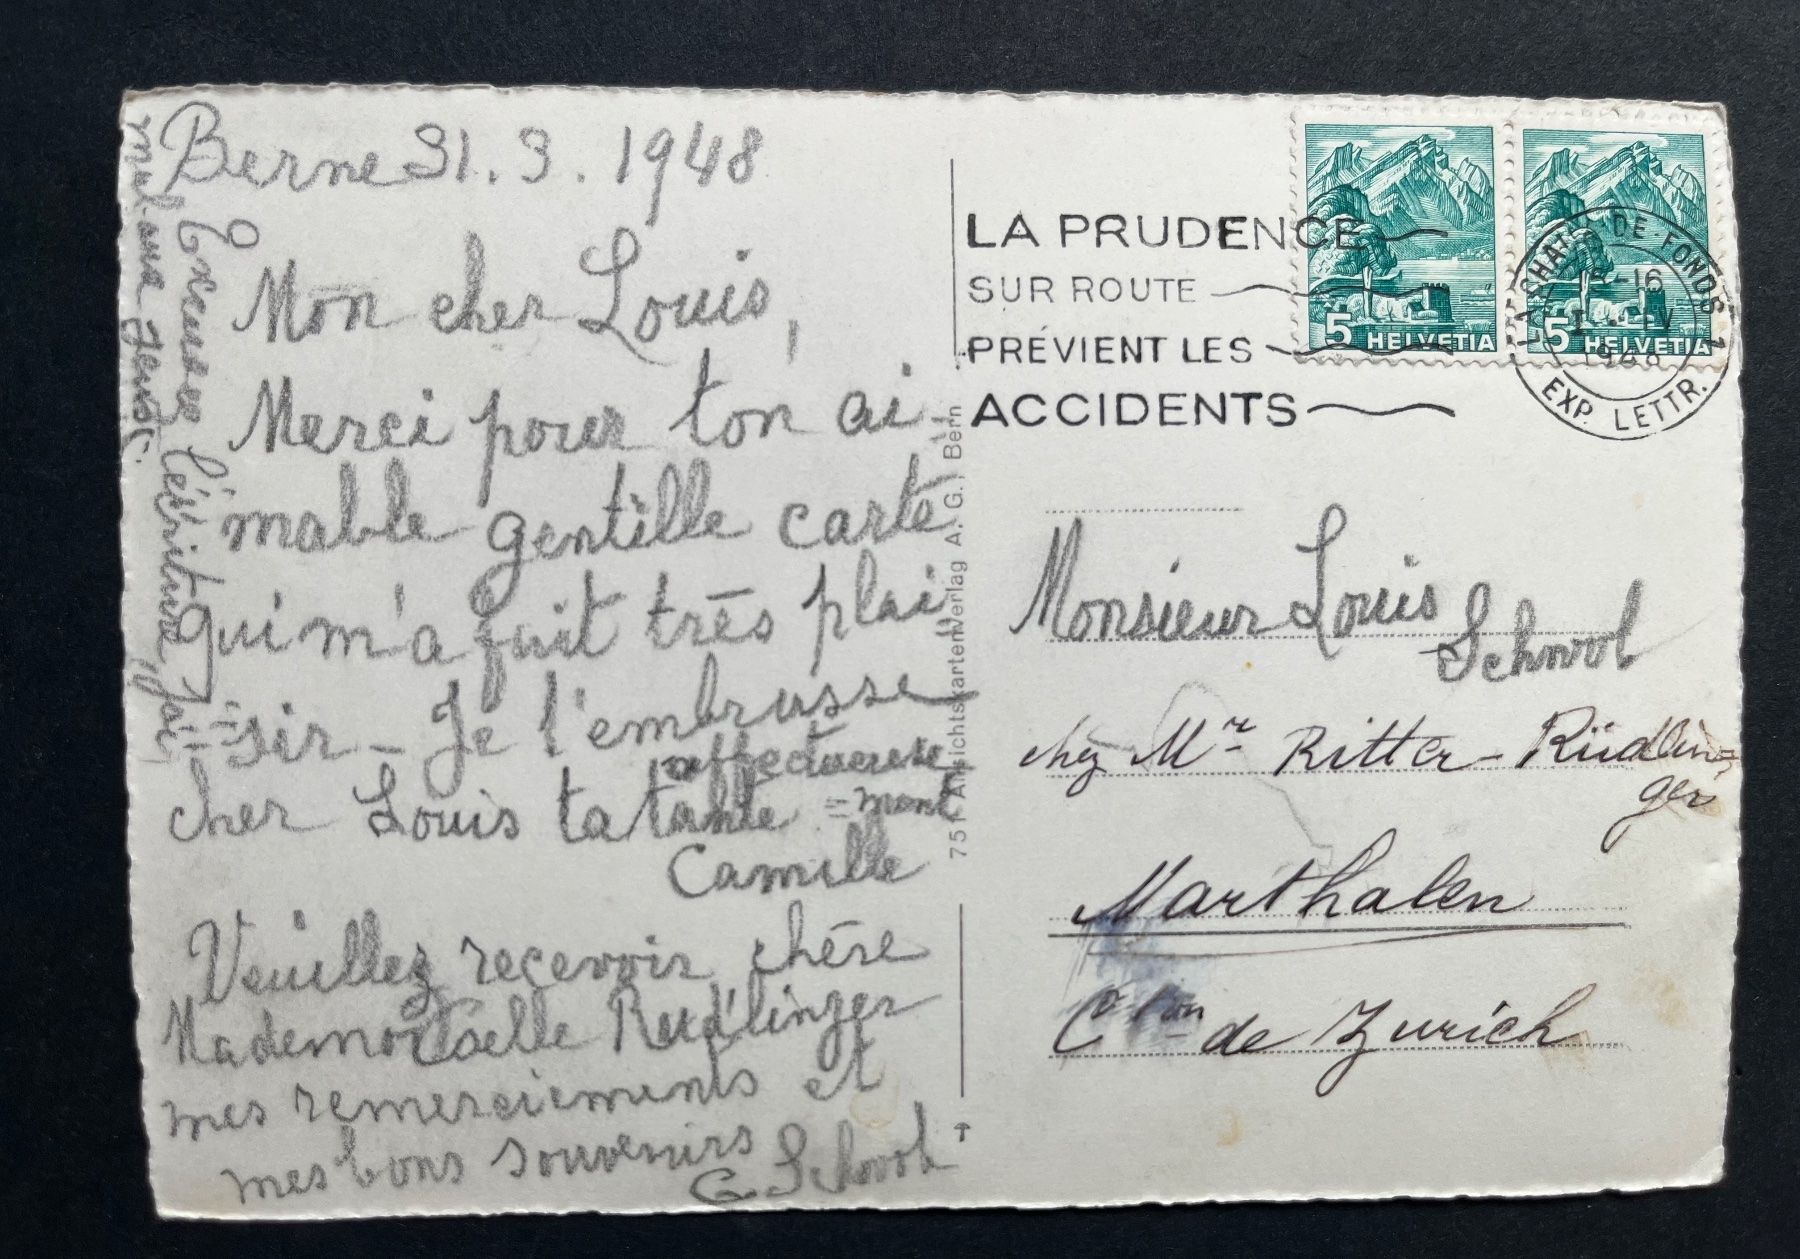 Berne 31. 3. 1948
Mon cher Louis,
Merci pour ton ai
mable gentille carte
qui m'a fait très plai
=sir - Je t'embrasse
affectueuse
=ment
cher Louis ta tante
Camille
Veuillez recevoir chère
Mademoiselle Rudlinger
mes remerciements et
mes bons souvenirs
C Schoob
Excusez l'écriture, j'ai
mal aux yeux.
751 Ansichtskartenverlag A. G. Bern
LA PRUDENCE
SUR ROUTE
PRÉVIENT LES
ACCIDENTS
5 HELVETIA
5 HELVETIA
LA CHAUX-DE-FONDS 1
-16
1948
EXP. LETTR.
Monsieur Louis
Schoob
chez Mr Ritter-Rüdlin=
ger
Marthalen
Cton de Zurich